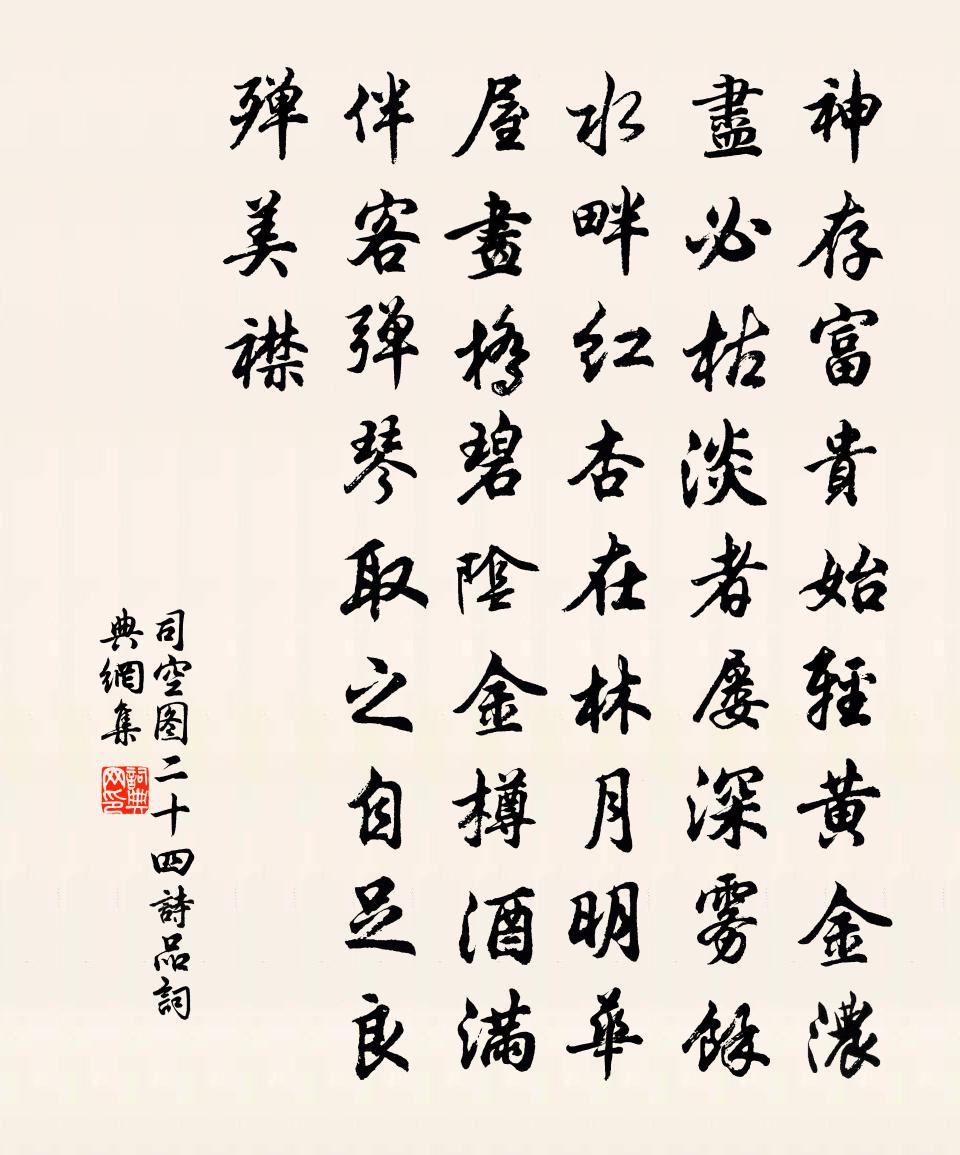 神存富貴始輕黃金濃
盡必枯淡者屢深雾餘
水畔紅杏在林月明華
屋畫橋碧陰金樽酒滿
伴客弹琴取之自足良
殫美襟
司空图二十四詩品詞
典網集
詞典网印